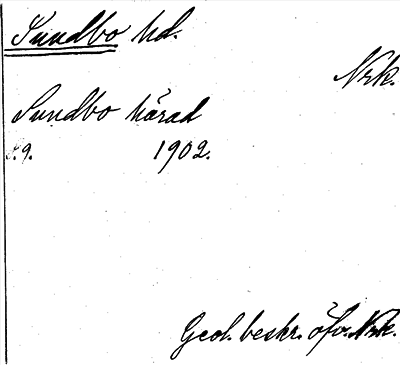 Sundbo hd.
Nrk.
Sundbo härad
s. 9. 1902.
Geol. beskr. öfv. Nrk.